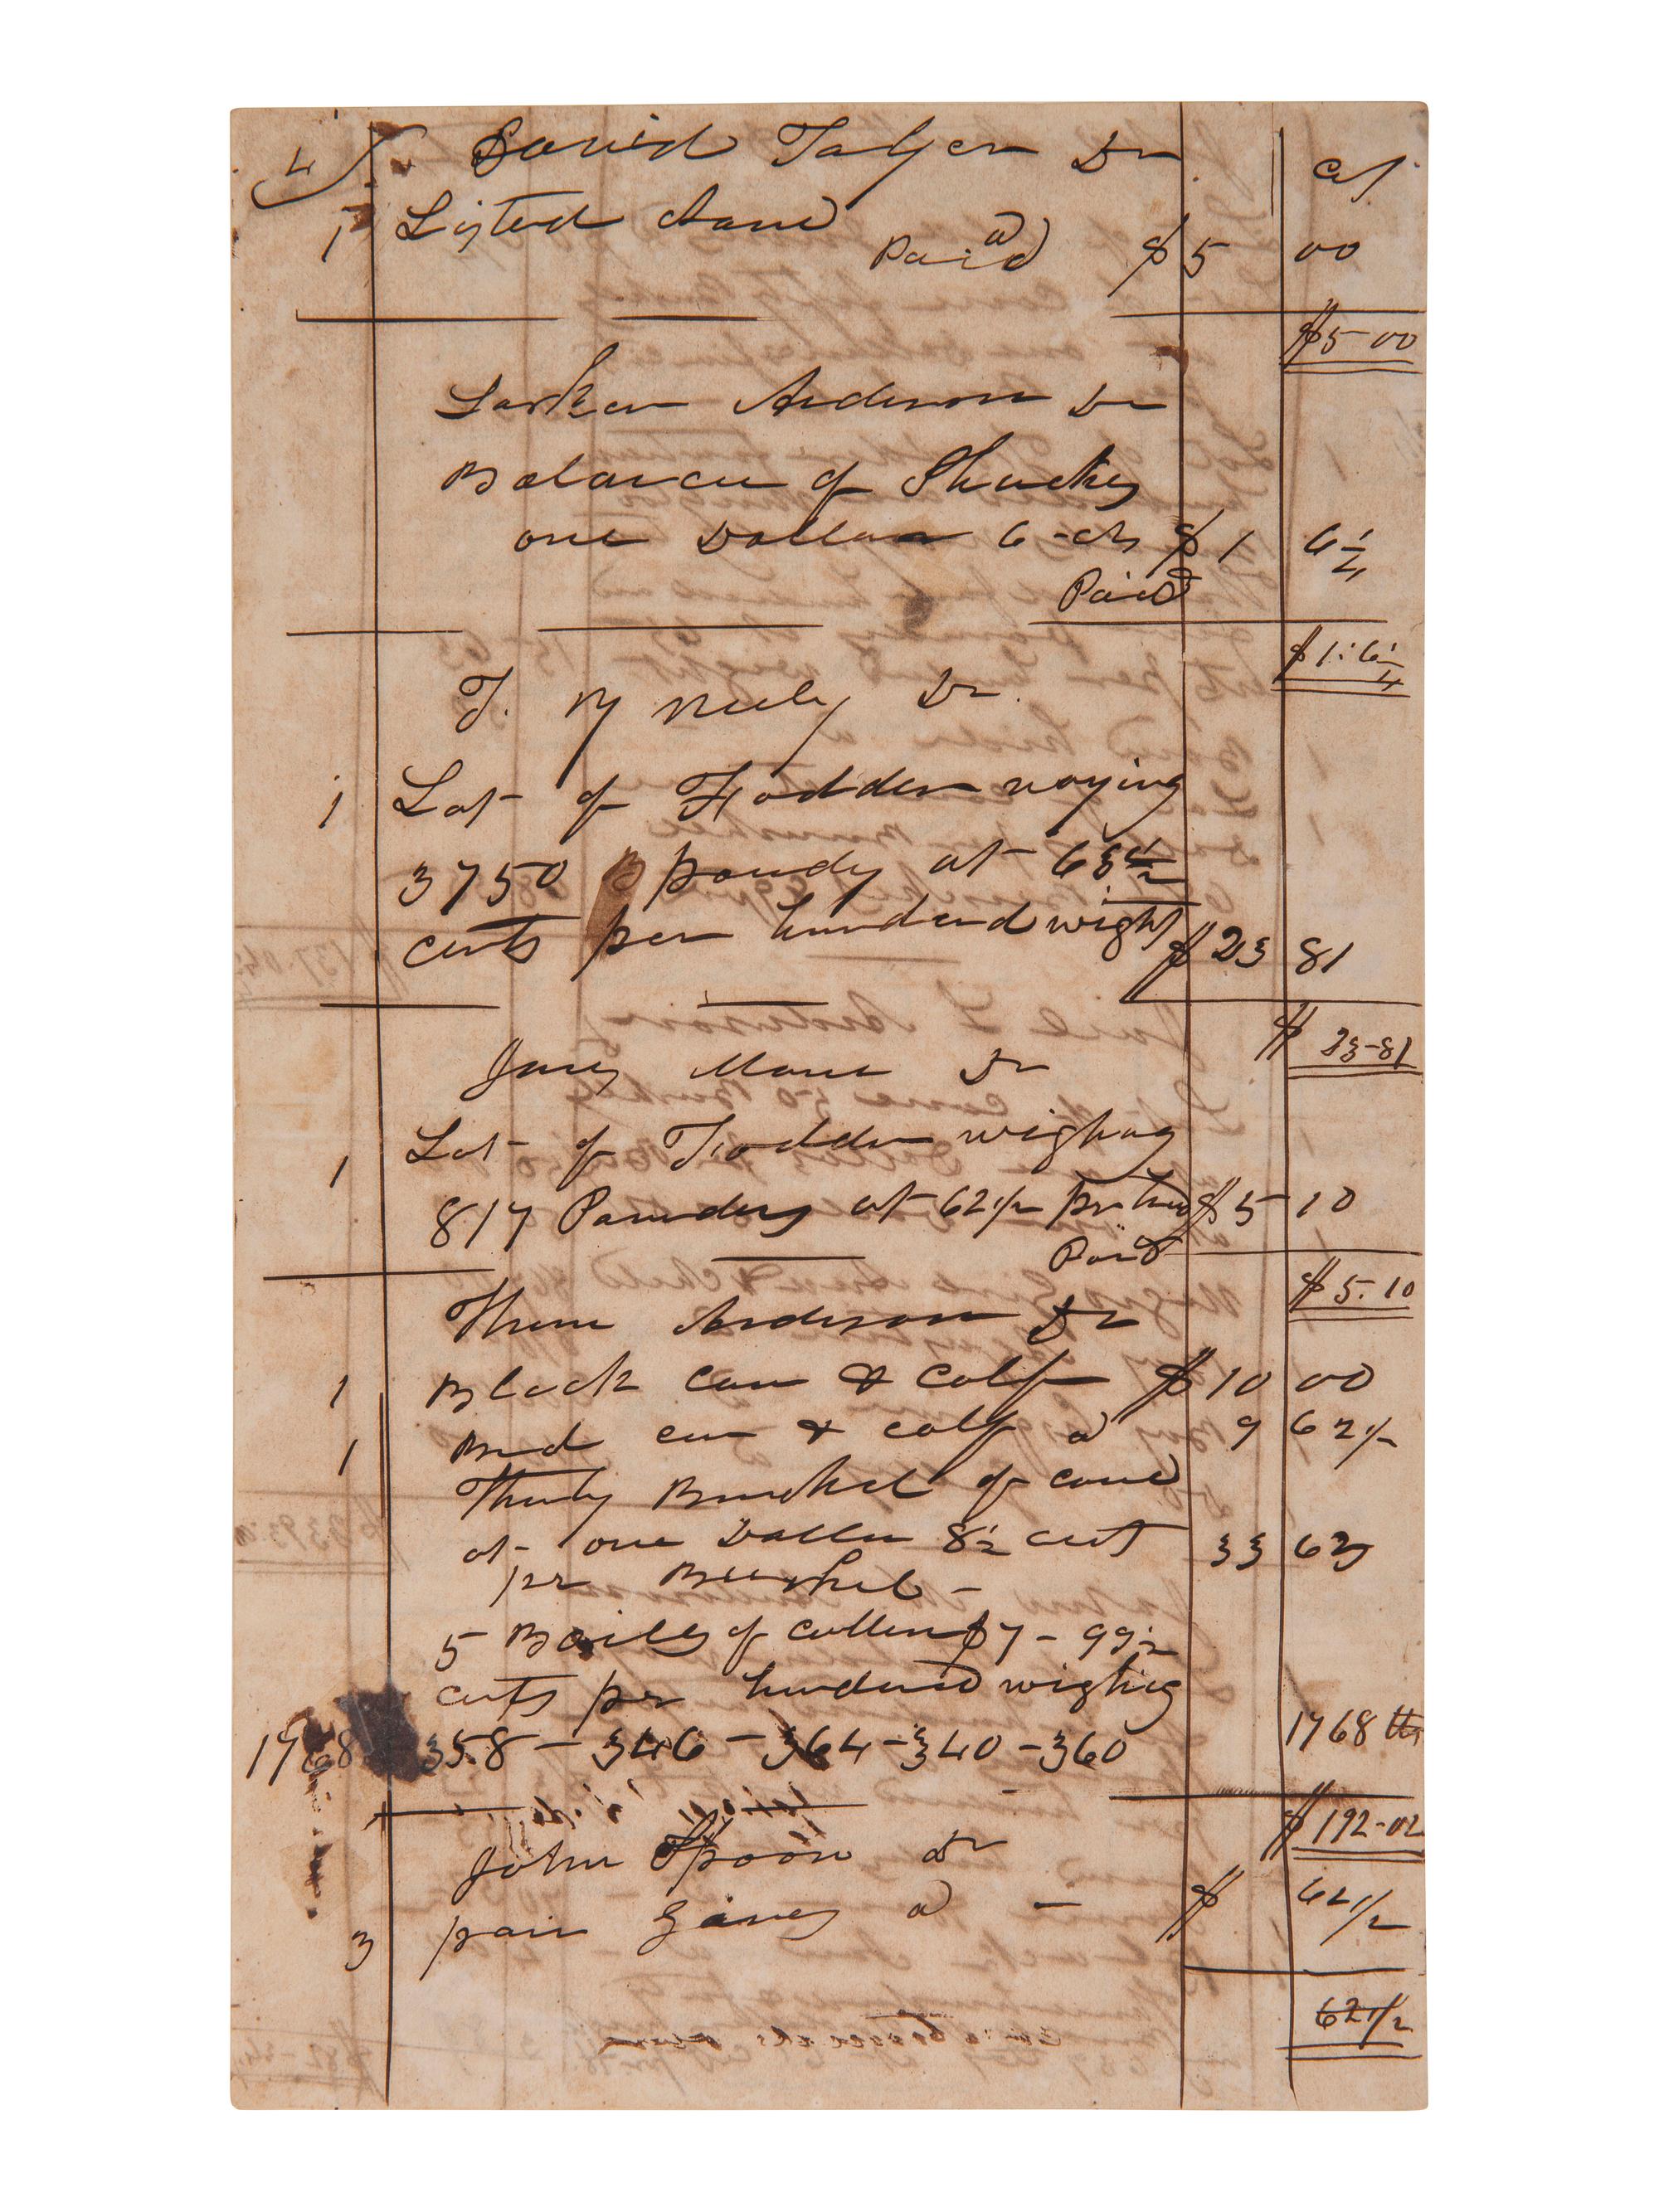 4 David Dr ct
1 Listed
Paid a $ 5 00
$5 00
Anderson Dr
Balance of Shucks
one Dollar 6 cts $ 1 6 1/4
Paid
$ 1: 6 1/4
T. M Neely Dr.
1 Lot of Fodder waying
3750 pounds at 63 1/2
cents per hundred wight $ 23 81
$ 23-81
Dr
1 Lot of Fodder wighing
817 Pounds at 62 1/2 pr hund $ 5 10
Paid
$ 5.10
Anderson Dr
1 Black Cow & Calf $ 10 00
1 Red cow & calf a 9 62 1/2
Thirty Bushel of corn
at one Dollar 8 1/2 cents 33 63
pr Bushel -
5 Bails of Cotten $7 - 99 1/2
cents pr hundred wighing
1768 358 - 346 - 364 - 340 - 360 1768 lbs
$ 192-02
John Spoon Dr
3 pair a - $ 62 1/2
62 1/2